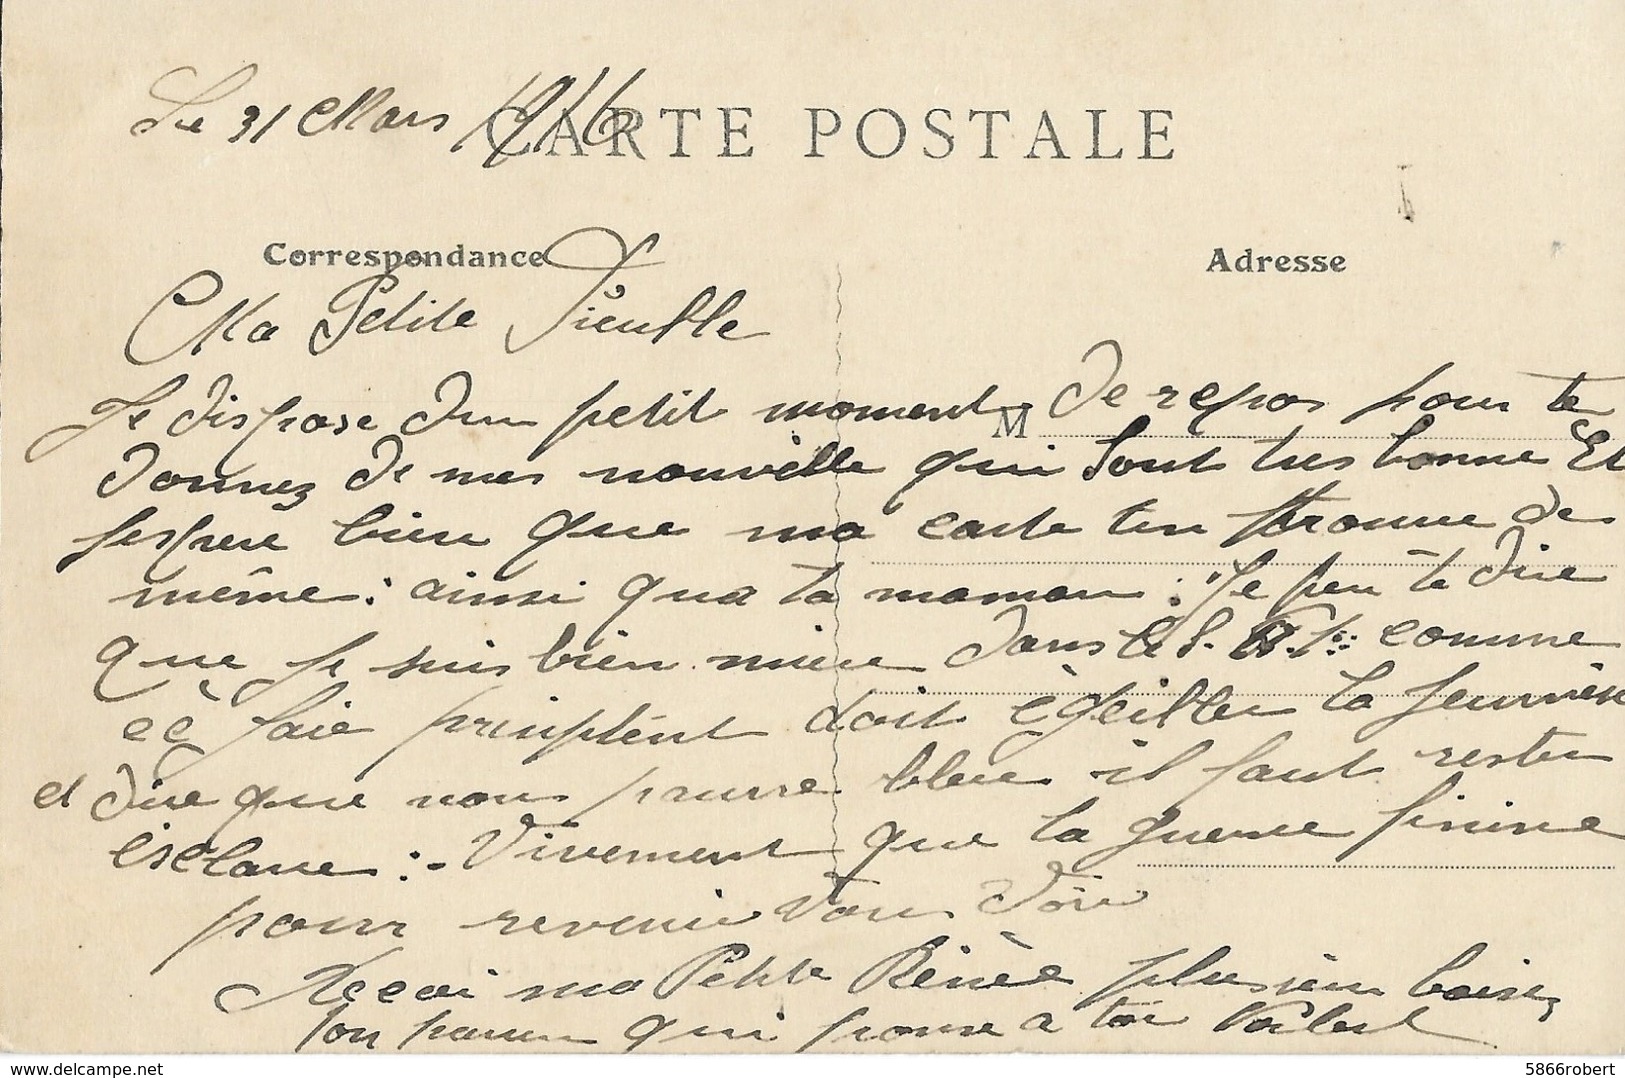 Le 31 Mars 1916
CARTE POSTALE
Correspondance
Adresse
Ma Petite Fieulle
Je dispose dun petit moment de repos pour te
M
donnez de mes nouvelle qui sont tres bonne Et
jespere bien que ma carte ten trouve de
même : ainsi qua ta maman : Je peu te dire
que je suis bien mieu dans le comme
ce faie prinptent doit la jeunnèse
et dire que nous pauvre bleu il faut rester
esclave :- Vivement que la guerre finise
pour revenir vous voire
Recoi ma Petite Rénèe plusieur baisez
ton parun qui pense a toi
delcampe.net
5866robert